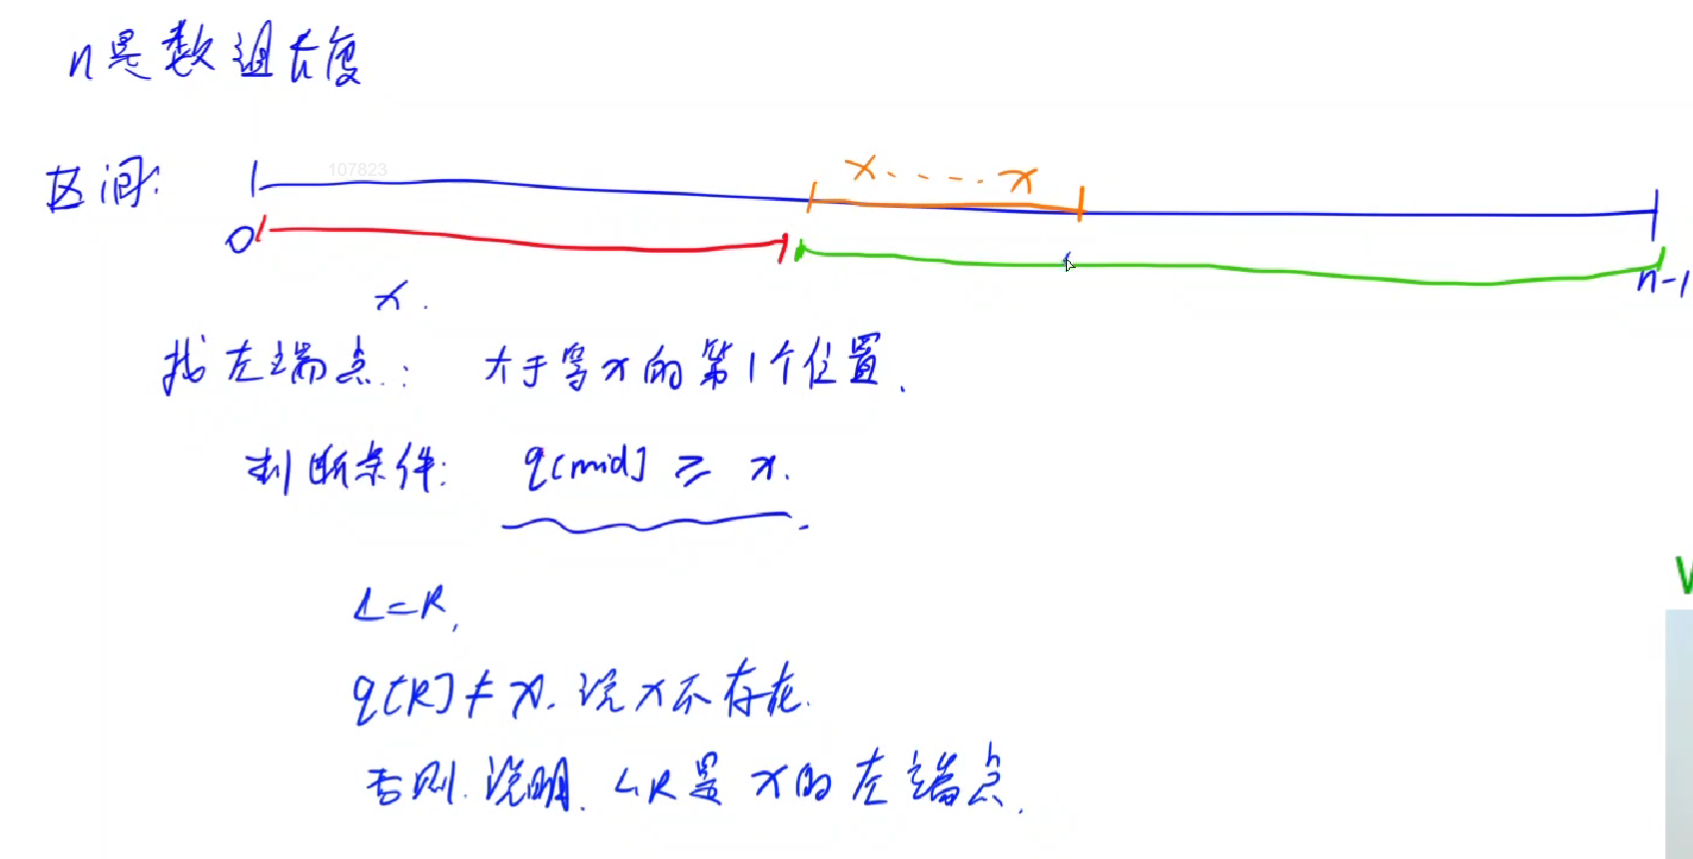 n是数组长度
107823
区间:
x.....x
0
n-1
x.
找左端点: 大于等x的第1个位置.
判断条件: q[mid] ≥ x.
L=R,
q[R]≠x. 说x不存在.
否则. 说明. L R是x的左端点.